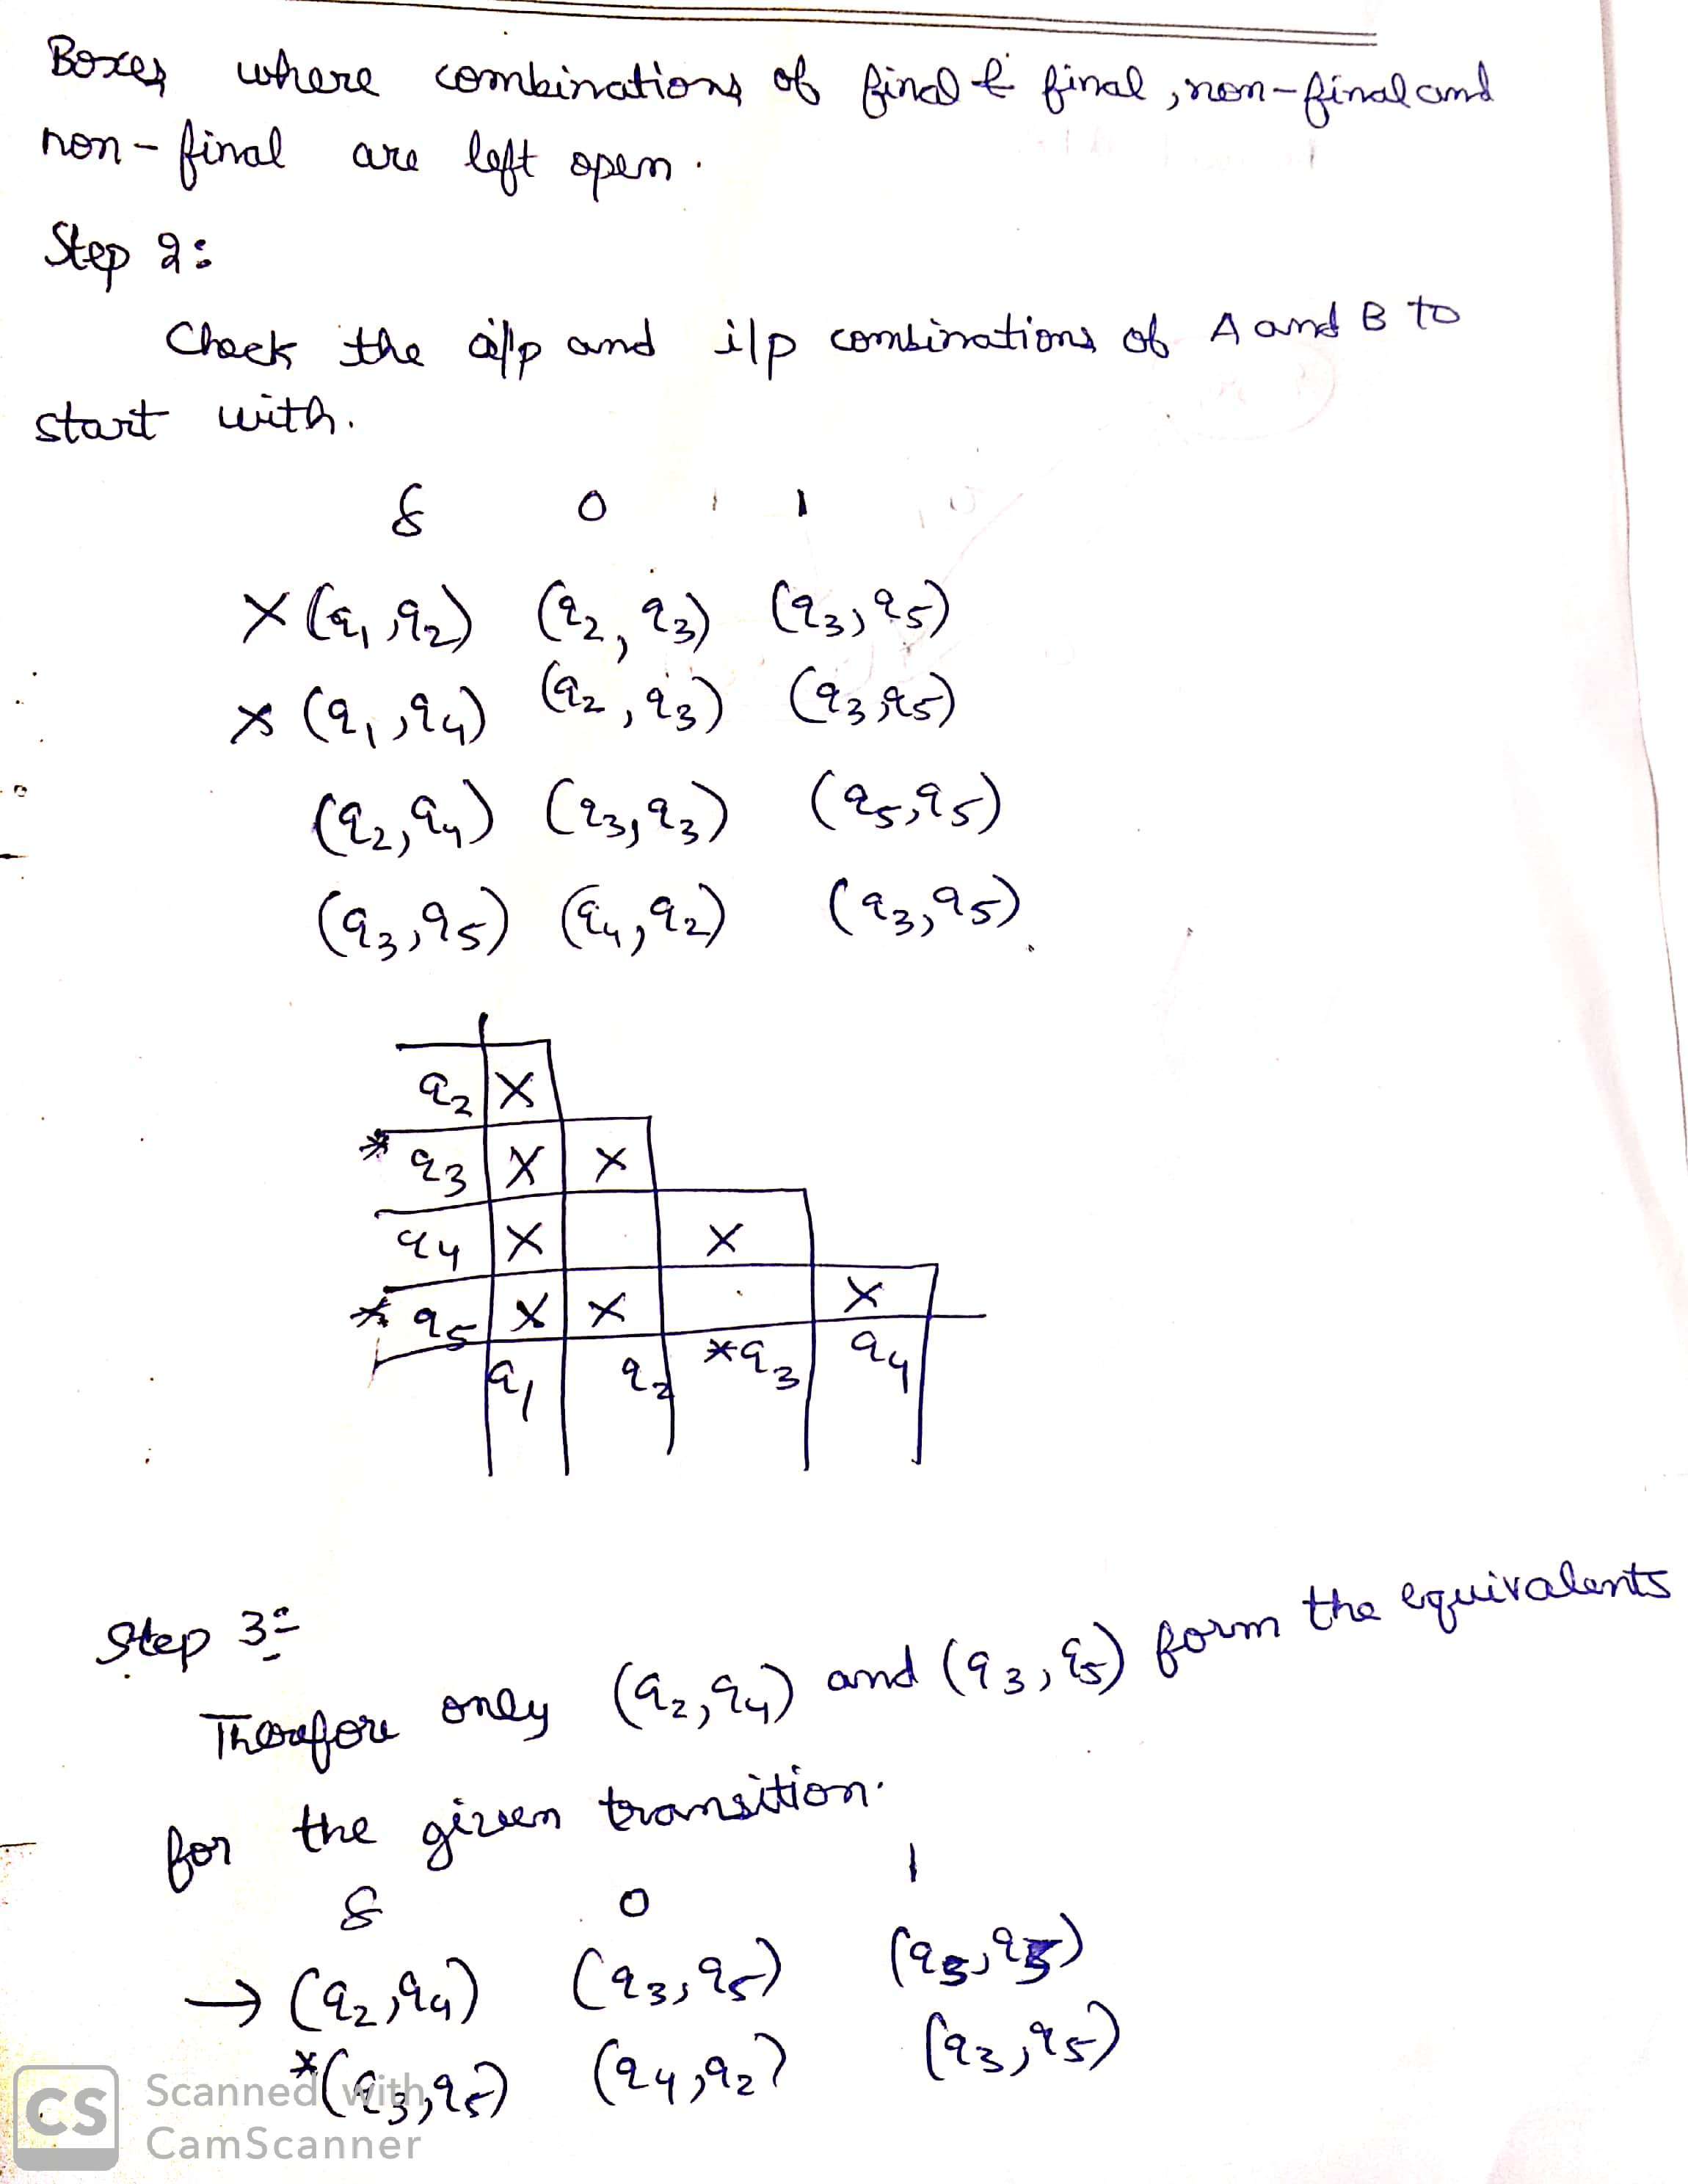 Boxes where combinations of final & final, non-final and
non-final are left open.
Step 2:
Check the o/p and i/p combinations of A and B to
start with.
δ 0 1
X (q1, q2) (q2, q3) (q3, q5)
x (q1, q4) (q2, q3) (q3, q5)
(q2, q4) (q3, q3) (q5, q5)
(q3, q5) (q4, q2) (q3, q5)
q2 X
* q3 X X
q4 X X
* q5 X X X
q1 q2 *q3 q4
Step 3:
Therefore only (q2, q4) and (q3, q5) form the equivalents
for the given transition.
δ 0 1
→ (q2, q4) (q3, q5) (q3, q5)
*(q3, q5) (q4, q2) (q3, q5)
CS Scanned with
CamScanner